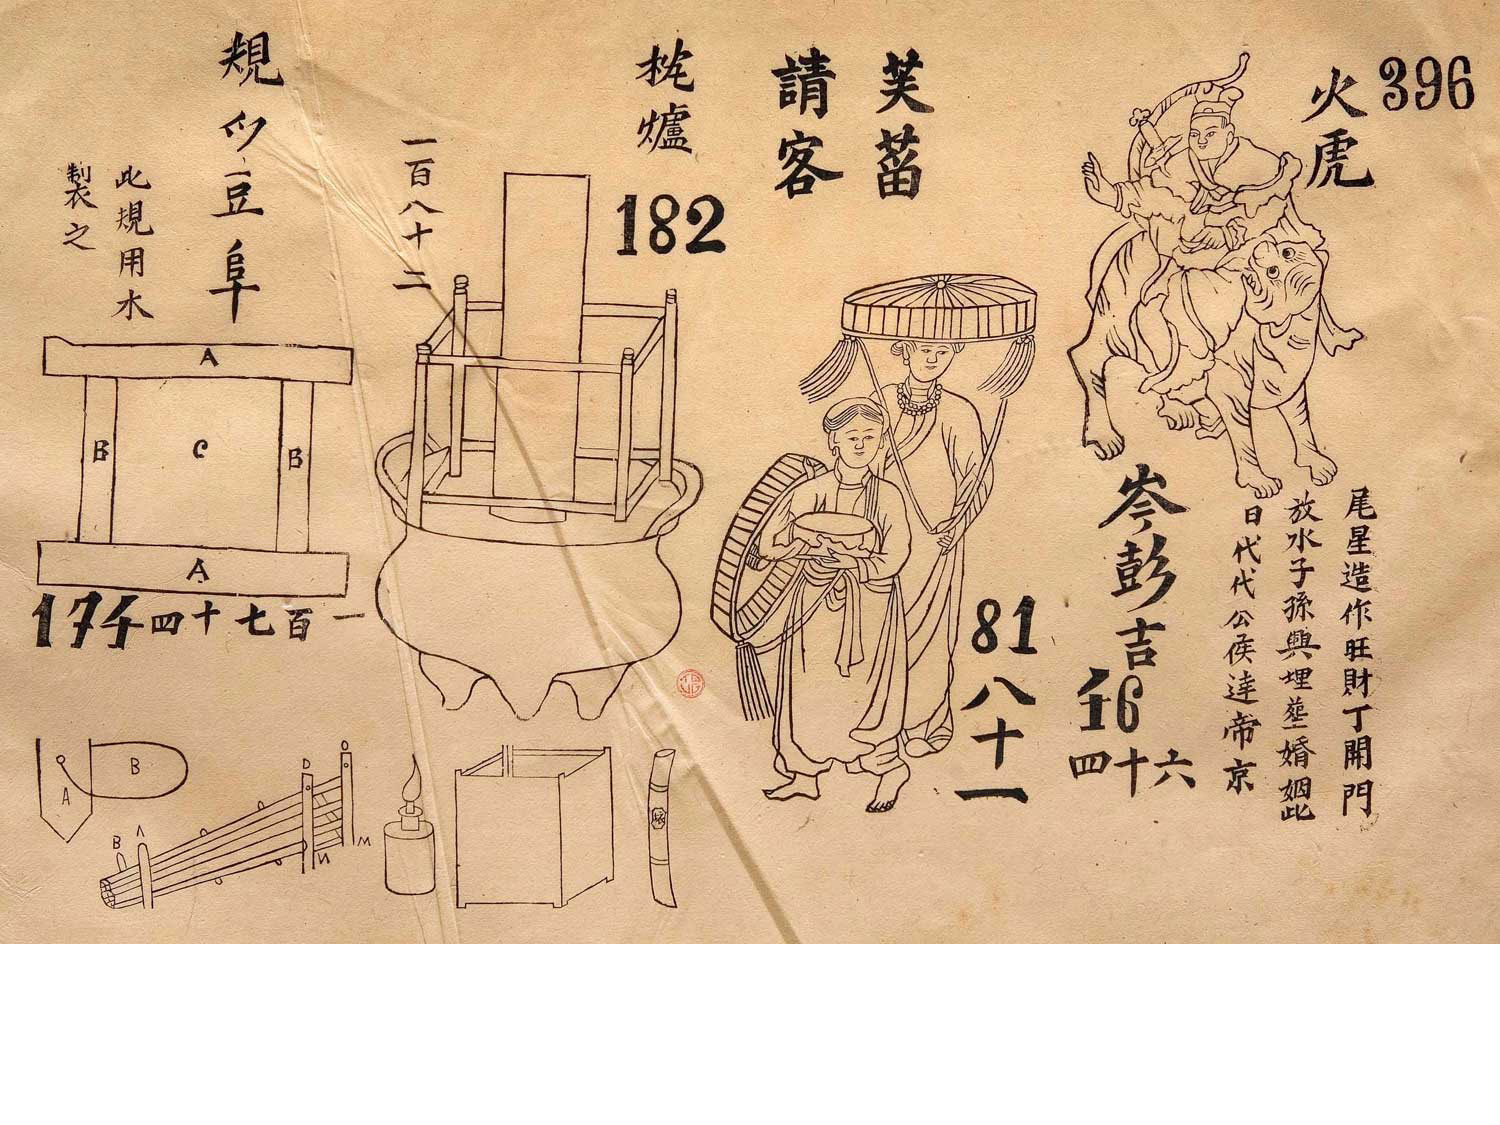 396
火虎
尾星造作旺財丁開門
放水子孫興埋塟婚姻此
日代代公侯達帝京
岑彭吉
46
四十六
芙蒥
請客
81
八十一
爐
182
一百八十二
規
豆阜
此規用水
製之
A
B
C
B
A
174
一百七十四
A
B
D
O
B
A
N
M